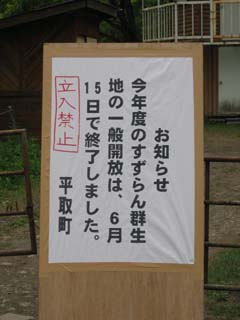 お知らせ
今年度のすずらん群生
地の一般開放は、6月
15日で終了しました。
平取町
立入禁止